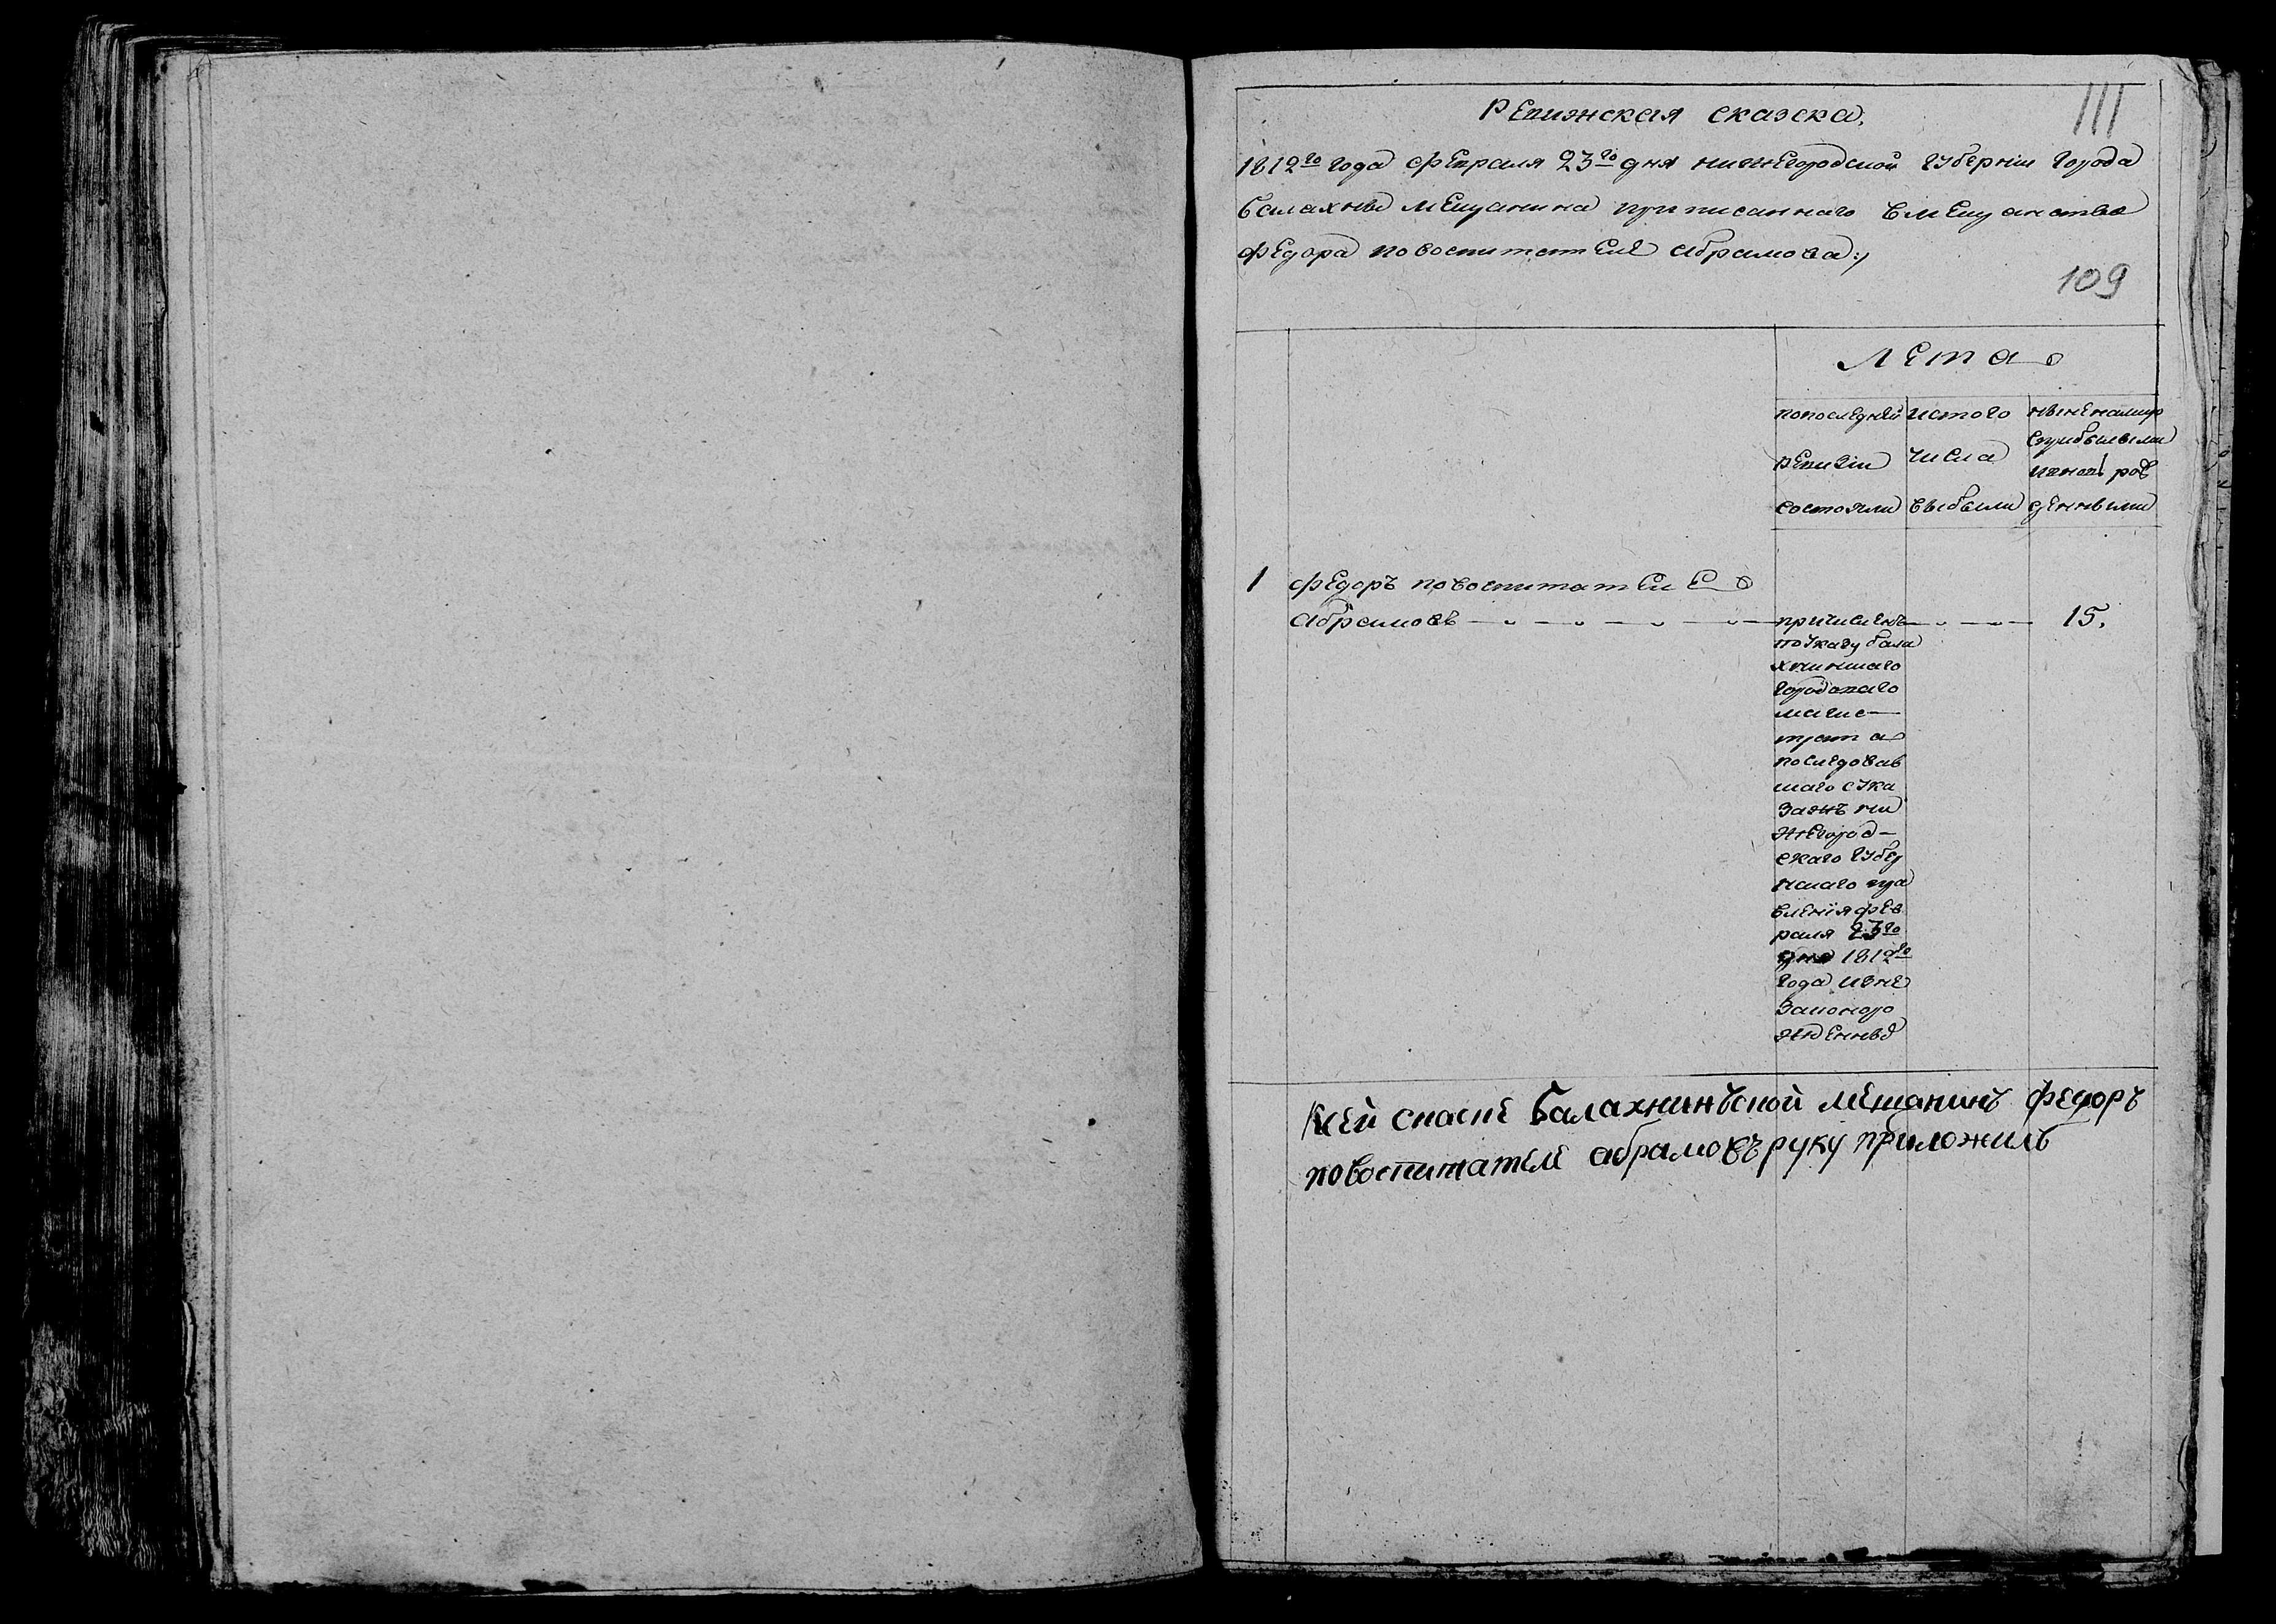 Ревижская сказска.
111
1812го года февраля 23го дня нижегородской губернии города
балахны мещанина приписаннаго вмещанство
федора повоспитателе абрамова:/
109
Лета
попоследней ревизии состояли
истого числа выбыли
ныне налицо
1 федоръ повоспитателе
абрамовъ причисленъ 15.
поуказу бала
хнинскаго
городскаго
магис-
трата
последовав
шаго сука
за
жегород-
скаго губер
нскаго пра
вления фев
раля 23го
дня 1812го
года
законоро
жденны
Ксей скаске балахнинъской мещанинъ федоръ
повоспитателе абрамовъ руку приложилъ